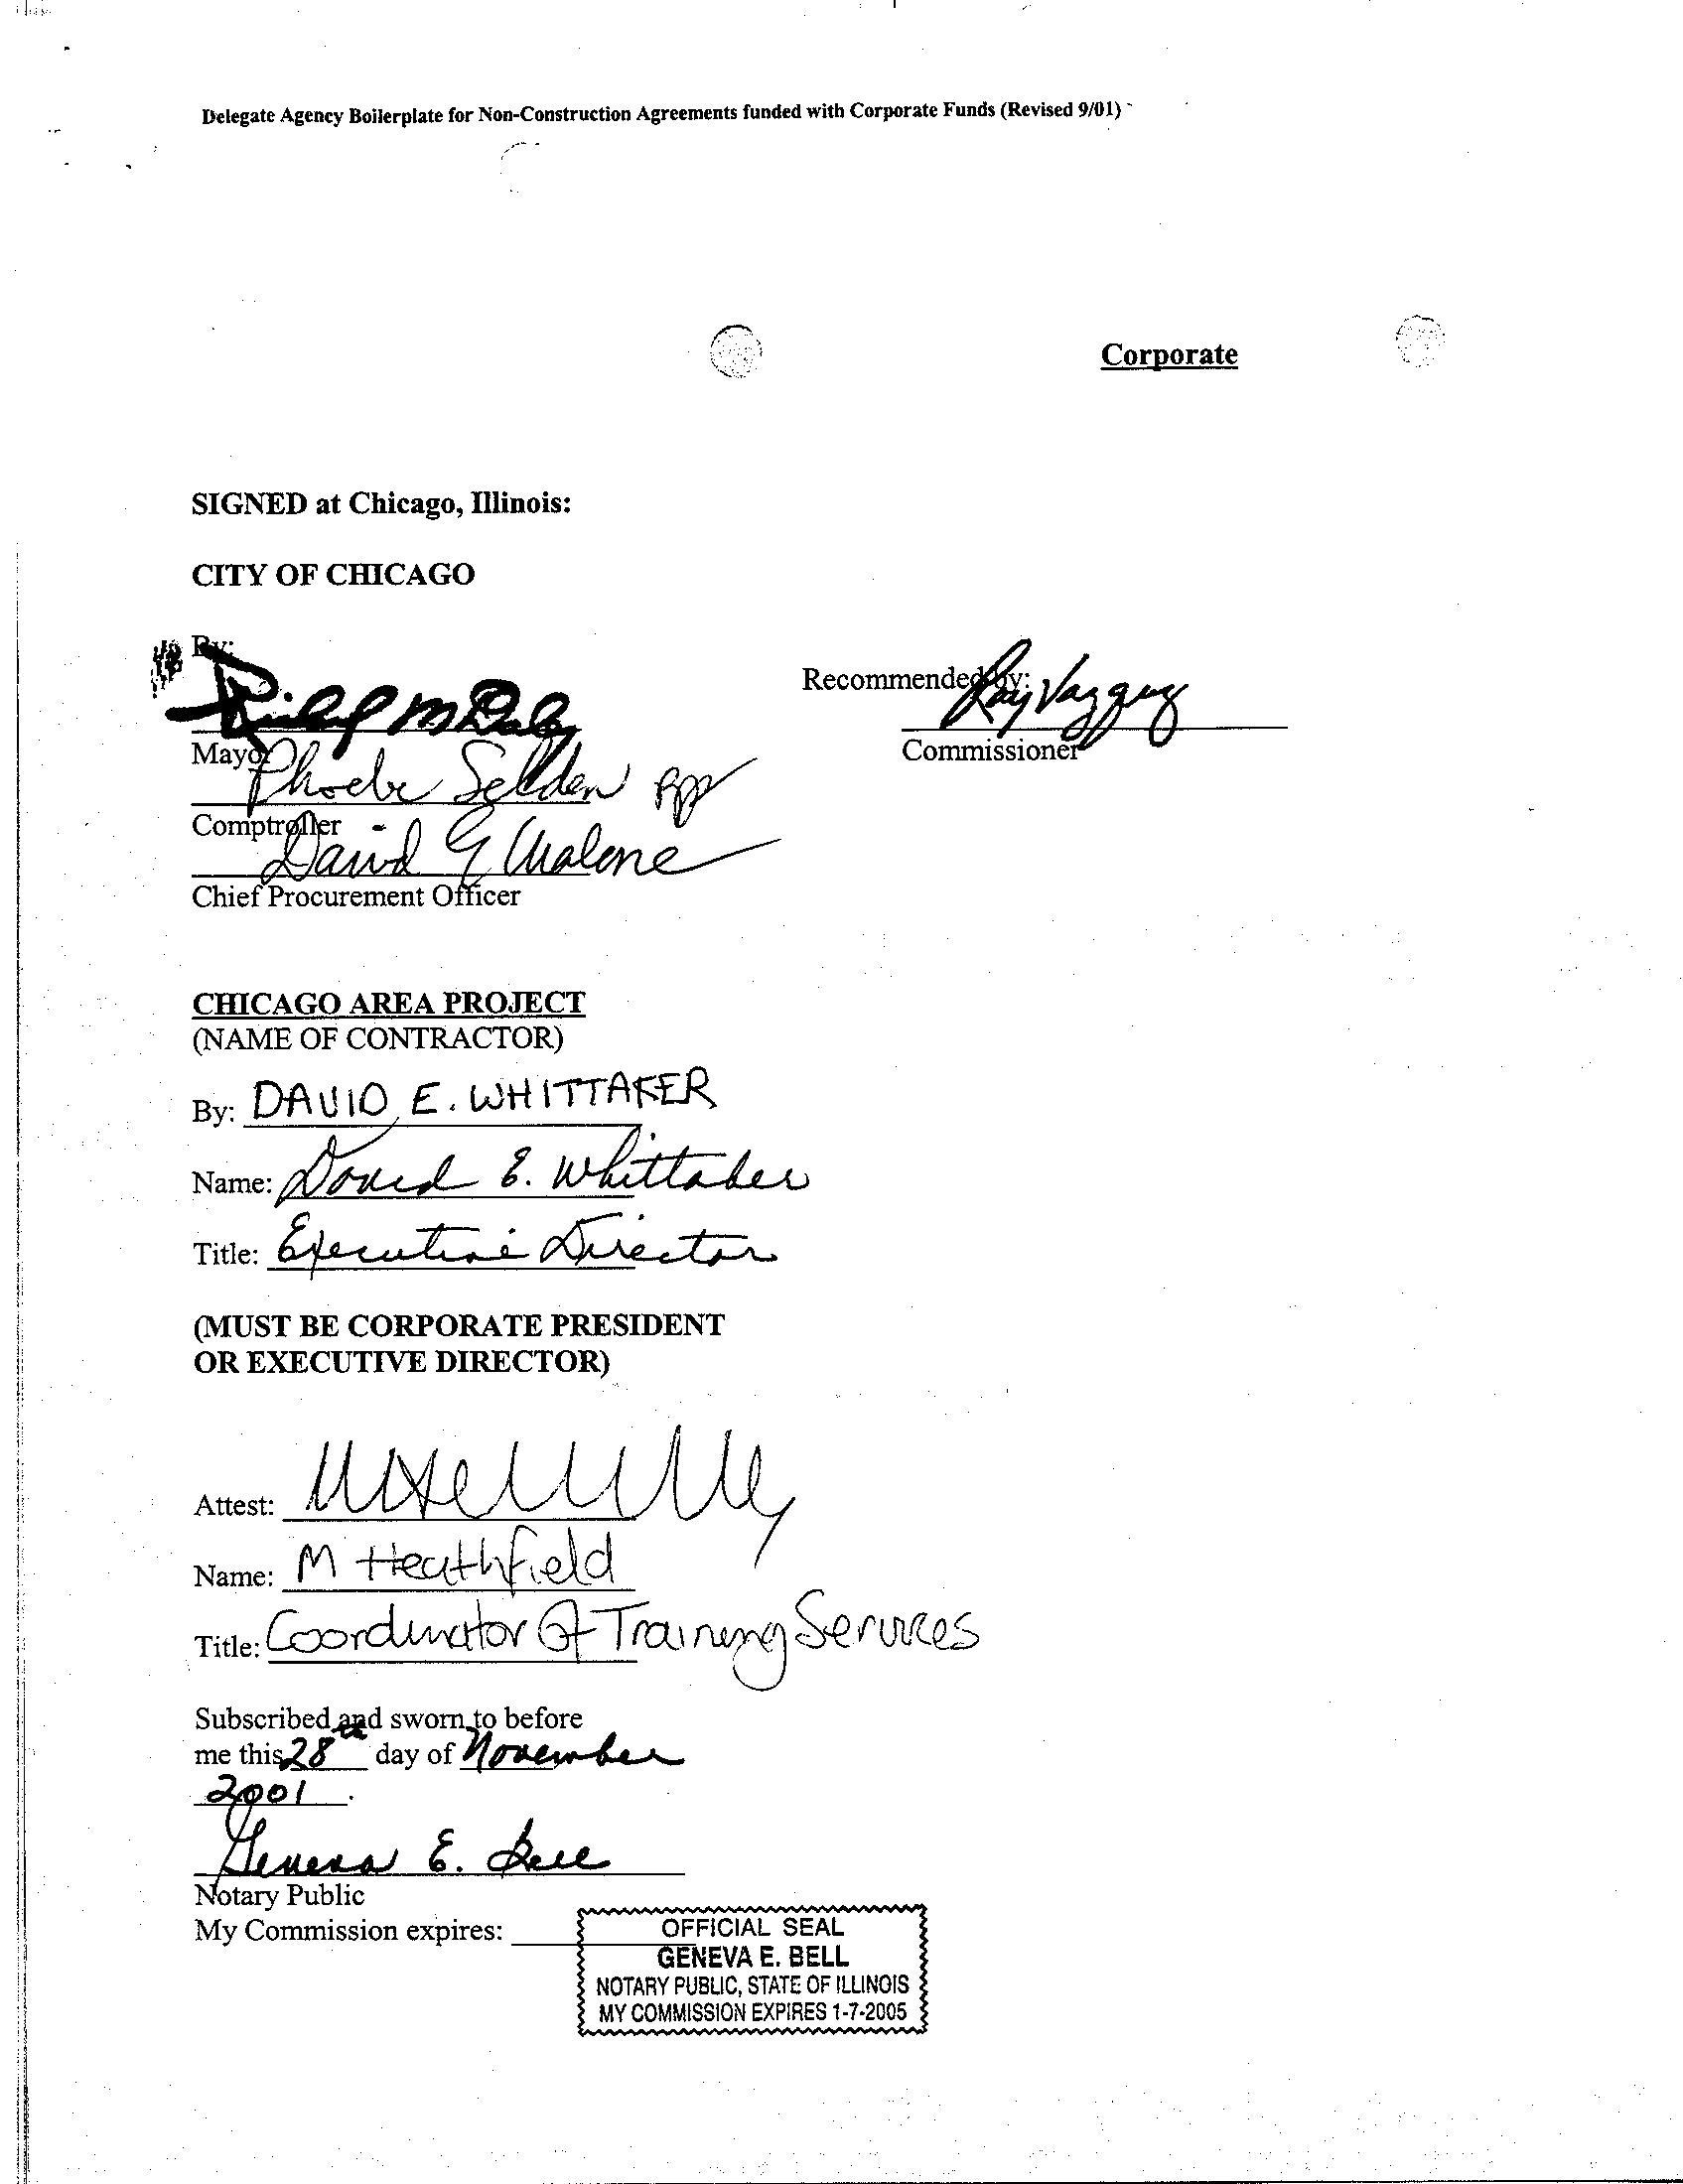 Delegate Agency Boilerplate for Non-Construction Agreements funded with Corporate Funds (Revised 9/01)
Corporate
SIGNED at Chicago, Illinois:
CITY OF CHICAGO
By:
Recommended by: Ray Vazquez
Mayor
Commissioner
Phoebe Selden
Comptroller
David E Malone
Chief Procurement Officer
CHICAGO AREA PROJECT
(NAME OF CONTRACTOR)
By: DAVID E. WHITTAKER
Name: David E. Whittaker
Title: Executive Director
(MUST BE CORPORATE PRESIDENT
OR EXECUTIVE DIRECTOR)
Attest:
Name: M Heathfield
Title: Coordinator Of Training Services
Subscribed and sworn to before
me this 28th day of November
2001.
Geneva E. Bell
Notary Public
My Commission expires:
OFFICIAL SEAL
GENEVA E. BELL
NOTARY PUBLIC, STATE OF ILLINOIS
MY COMMISSION EXPIRES 1-7-2005